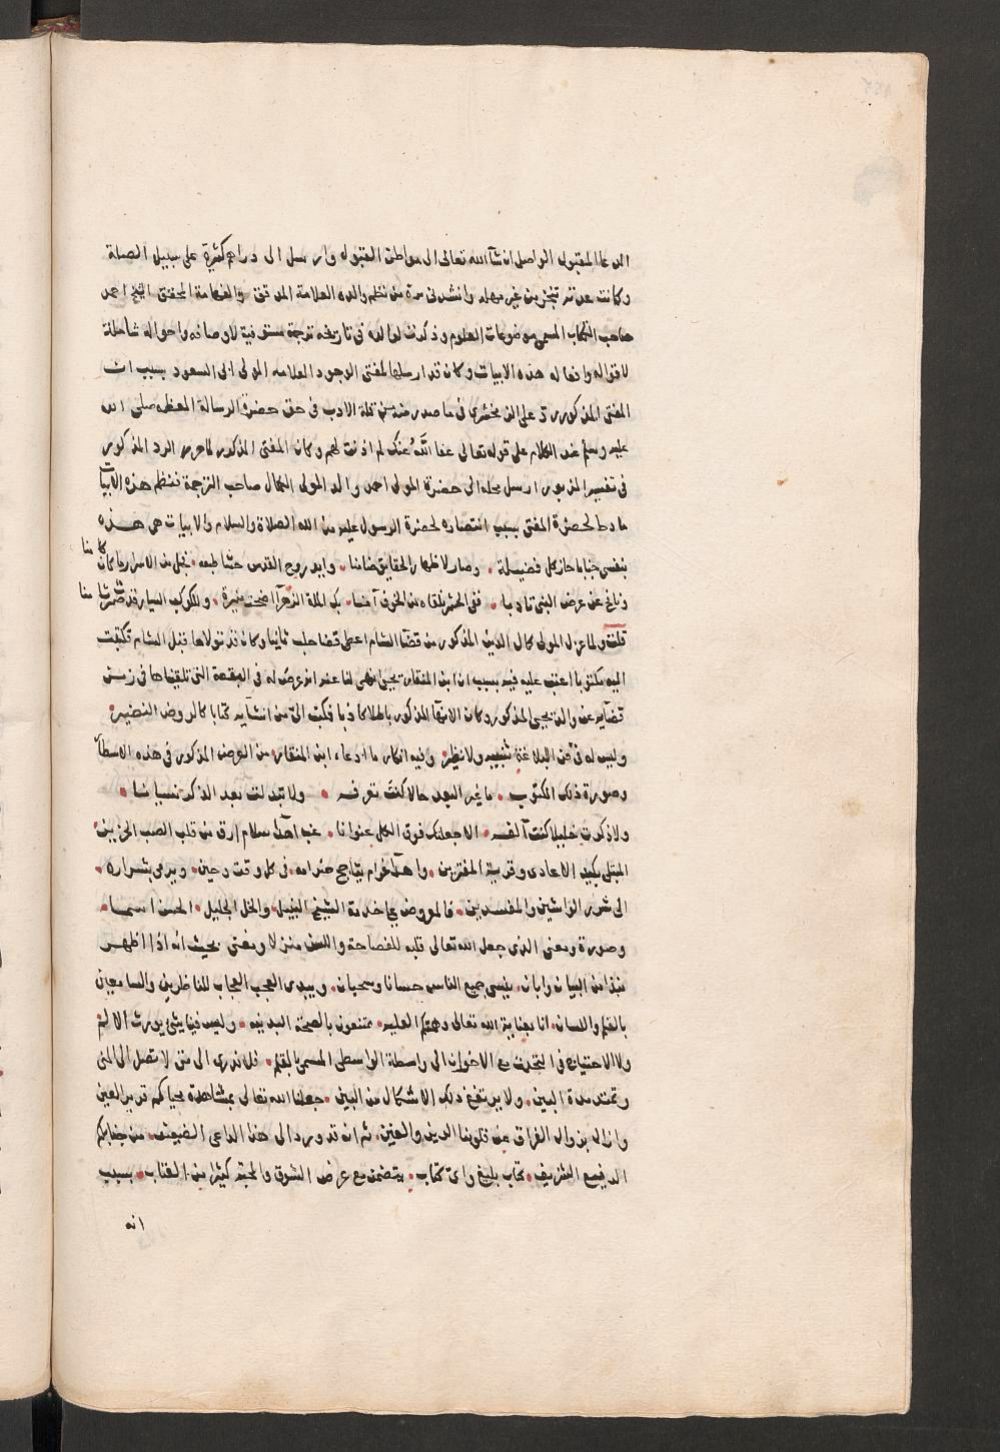 الدعا المقبول الواصل ان شآ الله تعالى الى مواطن القبول وارسل الى دراهم كثيرة على سبيل الصلة
وكانت عدته تنجز من غير مهله وانشدنى مرة من نظم والده العلامة المدقق والفهامة المحقق الشيخ احمد
صاحب الكتاب المسمى بموضوعات العلوم وذكرت لوالده فى تاريخه ترجمة مستوفية لاوصافه واحواله شاملة
لاقواله وافعاله هذه الابيات وكان قد ارسلها لمفتى الوجود العلامه المولى ابى السعود بسبب ان
المفتى المذكور رد على الزمخشرى فى ما صدر منه من قلة الادب فى حق حضرة الرسالة المعظمه صلى الله
عليه وسلم عند الكلام على قوله تعالى عفا الله عنك لم اذنت لهم وكان المفتى المذكور لما حرر الرد المذكور
فى تفسير المزبور ارسل محله الى حضرة المولى احمد والد المولى الكمال صاحب الترجمة فنظم هذه الابيات
مادحا لحضرة المفتى بسبب انتصاره لحضرة الرسول عليه من الله الصلاة والسلام والابيات هى هذه
بنفسى جنابا حاز كل فضيلة • وصار لاظهار الحقايق ضامنا • وايد روح القدس حسّا طبعه • فجلى من الاسرار ما كان كامنا
ونافح عن عرض النبى تادبا • ففى الحشر تلقاه من الخوف آمنا • بك الملة الزهرآ اضحت منيرة • وللكوكب السيار قد صرت ثامنا
قلت ولما عزل المولى كمال الدين المذكور من قضا الشام اعطى قضا حلب ثانيا وكان قد تولاها قبل الشام فكتبت
اليه مكتوبا اعتب عليه فيه بسبب ان ابن المنقار يحيى انهى لنا عنه انه عرض له فى البقعة التى تلقيناها فى زمن
قضايه عن والد يحيى المذكور وكان الانهآ المذكور باطلا كاذبا فكتب الىّ من انشآيه كتابا كالروض النضير •
وليس له فى فن البلاغة شبيه ولا نظير • وفيه انكار ما ادعاه ابن المنقار من العرض المذكور فى هذه الاسطار
وصورة ذلك المكتوب • ما غير البعد حالا كنت تعرفه • ولا تبدلت بعد الذكر نسيانا •
ولا ذكرت خليلا كنت آلفه • الا جعلتك فوق الكل عنوانا • غب اهدآ سلام ارق من قلب الصب الحزين •
المبتلى بكيد الاعادى وفرية المفترين • واهدآ غرام يتاجج ضرامه • فى كل وقت وحين • ويرمى بشراره •
الى شرر الواشين والمفسدين • فالمعروض بخدمة الشيخ النبيل • والخل الجليل • الحسن اسما •
وصورة ومعنى الذى جعل الله تعالى قلبه للفصاحة واللسن منزلا ومغنى بحيث انه اذا اظهر
نبذا من البيان وابان • ينسى جميع الناس حسانا وسحبان • ويبدى العجب العجاب للناظرين والسامعين
بالقلم واللسان • انا بعناية الله تعالى وهمتكم العليه • متمتعون بالصحة البدنيه • وليس فينا شئ يورث الالم
ولا الاحتياج فى التحدث مع الاخوان الى واسطة الواسطى المسمى بالقلم • فلا ندرى الى متى لا تصل الى المنى
وتمتد مدة البين • ولا يرتفع ذلك الاشكال من البين • جعلنا الله تعالى بمشاهدة محياكم قرير العين
وازال بزوال الفراق عن قلوبنا الرين والغين • ثم ان قد ورد الى هذا الداعى الضعيف • من جنابكم
الرفيع الشريف • كتاب بليغ واى كتاب • يتضمن مع عرض الشوق والمحبة كثيرا من العتاب • بسبب
انه